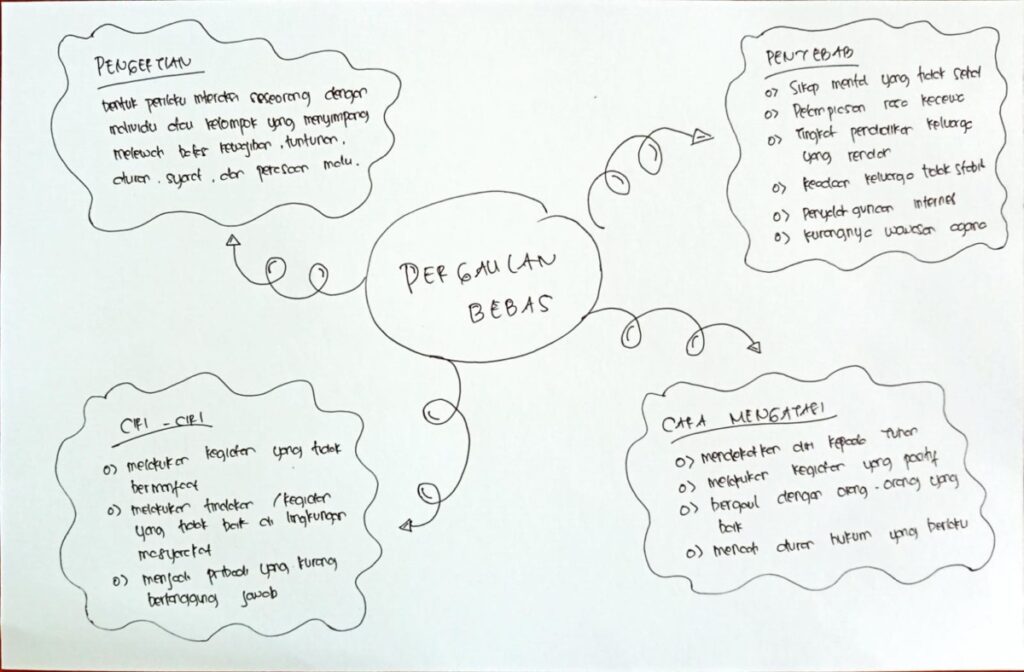 PENGERTIAN
bentuk perilaku interaksi seseorang dengan
individu atau kelompok yang menyimpang
melewati batas kewajiban, tuntunan,
aturan, syarat, dan perasaan malu.
PENYEBAB
o) Sikap mental yang tidak sehat
o) Pelampiasan rasa kecewa
o) Tingkat pendidikan keluarga
yang rendah
o) keadaan keluarga tidak stabil
o) Penyalah gunaan internet
o) kurangnya wawasan agama
PERGAULAN
BEBAS
CIRI - CIRI
o) melakukan kegiatan yang tidak
bermanfaat
o) melakukan tindakan / kegiatan
yang tidak baik di lingkungan
masyarakat
o) menjadi pribadi yang kurang
bertanggung jawab
CARA MENGATASI
o) mendekatkan diri kepada Tuhan
o) melakukan kegiatan yang positif
o) bergaul dengan orang - orang yang
baik
o) menaati aturan hukum yang berlaku